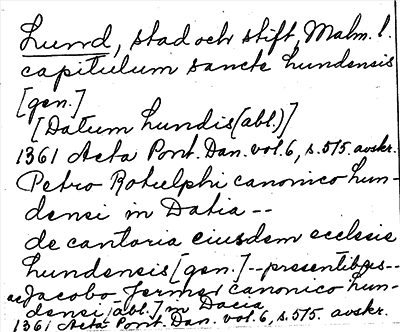 Lund, stad och stift, Malm. l.
capitulum sancte Lundensis
[gen.]
[Datum Lundis (abl.)]
1361 Acta Pont. Dan. vol. 6, s. 515. avskr.
Petro Rotulphi canonico Lun-
densi in Datia --
de cantoria eiusdem ecclesie
Lundensis [gen.] -- presentibus --
ac Jacobo Jermer canonico Lun-
densi [abl.] in Dacia
1361 Acta Pont. Dan. vol. 6, s. 515. avskr.